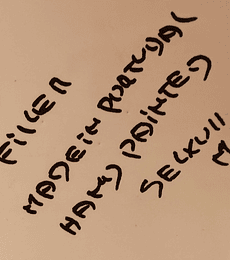 FILLER
MADE IN PORTUGAL
HAND PAINTED
SELKUII
M